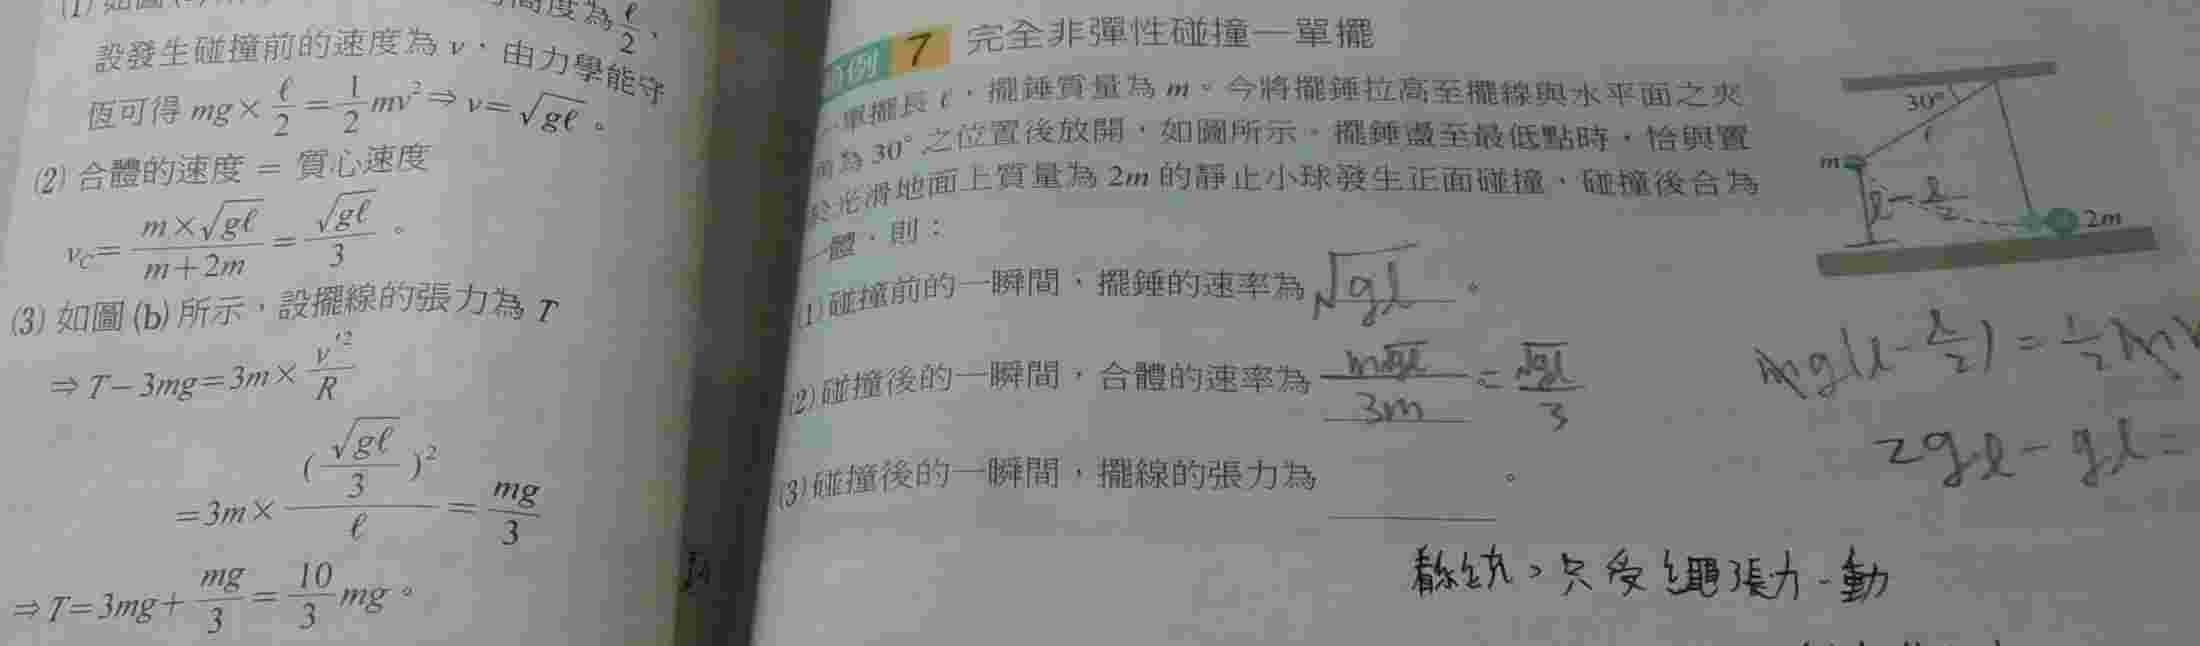 設發生碰撞前的速度為 v，由力學能守
恆可得 mg × ℓ/2 = 1/2 mv² ⇒ v = √gℓ 。
(2) 合體的速度 = 質心速度
v_C = m × √gℓ / m + 2m = √gℓ / 3 。
(3) 如圖 (b) 所示，設擺線的張力為 T
⇒ T − 3mg = 3m × v'² / R
= 3m × (√gℓ / 3)² / ℓ = mg / 3
⇒ T = 3mg + mg/3 = 10/3 mg 。
例 7 完全非彈性碰撞—單擺
一單擺長 ℓ，擺錘質量為 m。今將擺錘拉高至擺線與水平面之夾
角為 30° 之位置後放開，如圖所示。擺錘盪至最低點時，恰與置
於光滑地面上質量為 2m 的靜止小球發生正面碰撞，碰撞後合為
一體，則：
30°
ℓ
m
ℓ − ℓ/2
2m
(1) 碰撞前的一瞬間，擺錘的速率為 √gℓ 。
(2) 碰撞後的一瞬間，合體的速率為 m√gℓ / 3m = √gℓ / 3
(3) 碰撞後的一瞬間，擺線的張力為 。
mg(ℓ − ℓ/2) = 1/2 m
2gℓ − gℓ =
看系統，只受繩張力